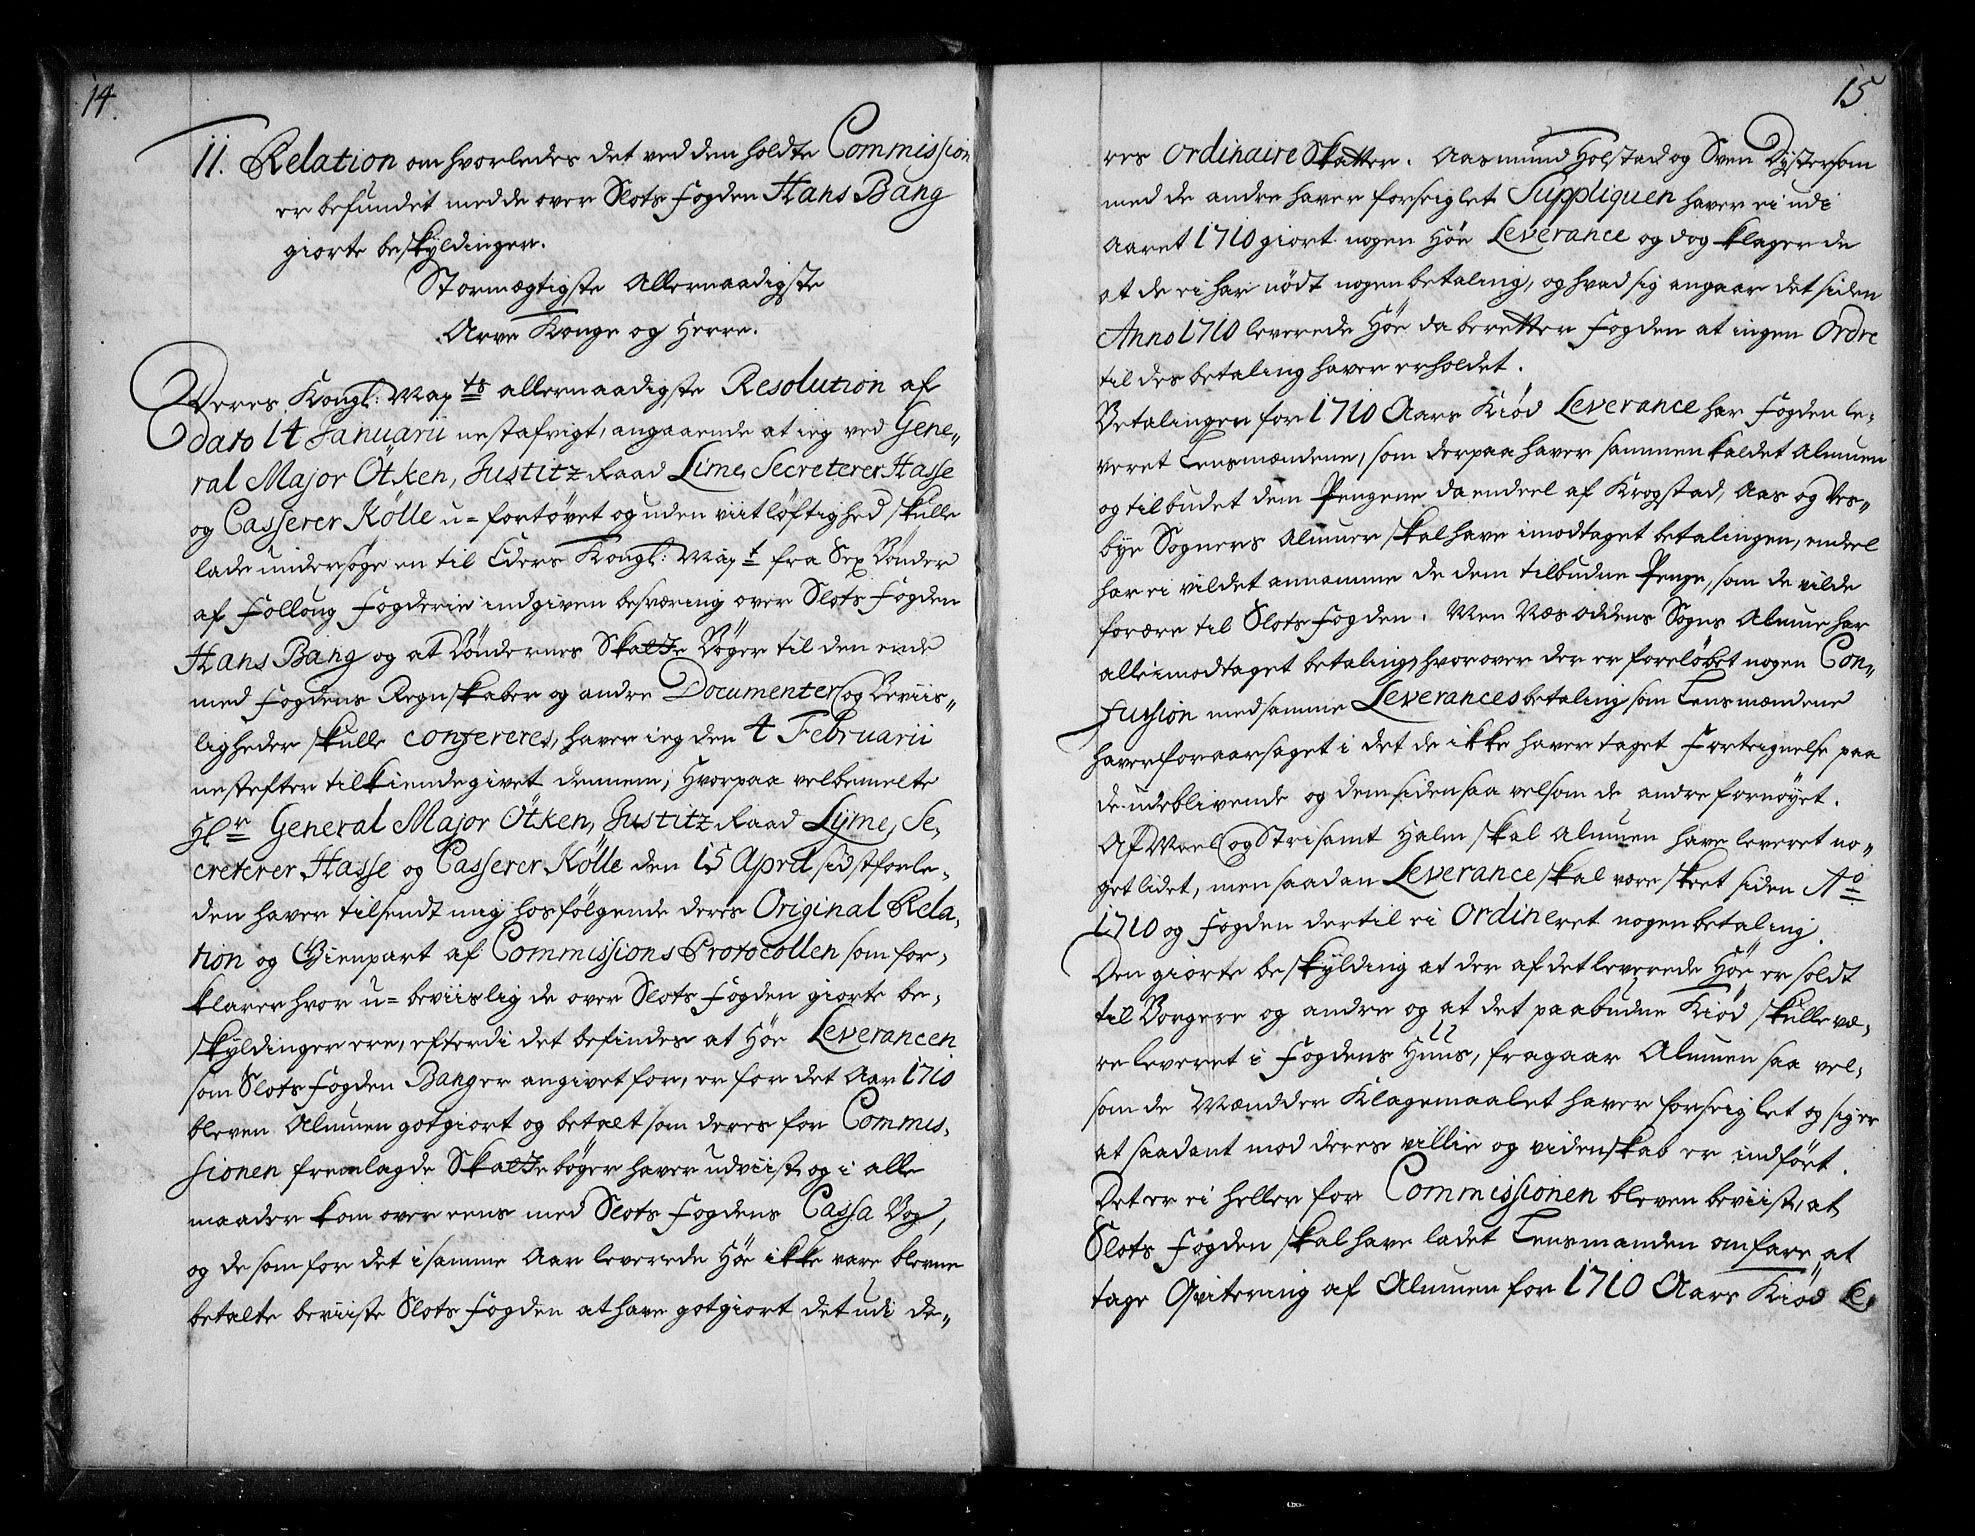 14.
11. Relation om hvorledes det ved den holdte Commission
er befundet med de over Slots Fogden Hans Bang
giorte beskyldinger.
Stormægtigste Allernaadigste
Arve Konge og Herre.
Deres Kongl: May.ts allernaadigste Resolution af
dato 14 Januarii nestafvigt, angaaende at ieg ved Gene„
ral Major Ötken, Justitz Raad Lime, Secreterer Hasse
og Casserer Kölle u= fortøvet og uden viitløftighed skulle
lade undersøge en til Eders Kongl: May.t fra Sex Bønder
af Folloug Fogderie indgiven besværing over Slots Fogden
Hans Bang og at Bøndernes Skatte Bøger til den ende
med Fogdens Regnskaber og andre Documenter og Beviis„
ligheder skulle confereres, haver ieg den 4 Februarii
nestefter tilkiendegivet dennem, Hvorpaa velbemelte
Hr. General Major Ötken, Justitz Raad Lyme, Se„
creterer Hasse og Casserer Kölle den 15 April sidstforle„
den haver tilsendt mig hosfølgende deres Original Rela„
tion og Gienpart af Commissions Protocollen som for„
klarer hvor u= beviislig de over Slots Fogden giorte be„
skyldinger ere, efterdi det befindes at Høe Leverancen
som Slots Fogden Bang er angivet for, er for det Aar 1710
bleven Almuen gotgiort og betalt som deres for Commis„
sionen fremlagde Skatte bøger haver udviist, og i alle
maader kom over eens med Slots Fogdens Cassa Bog,
og de som for det i samme Aar leverede Høe ikke vare blevne
betalte beviiste Slots Fogden at have gotgiort det udi de„
15
res Ordinaire Skatter. Aasmund Holstad og Sven Dyster som
med de andre haver forseiglet Suppliquen haver ei udi
Aaret 1710 giort nogen Høe Leverance og dog klager de
at de ei har nødt nogen betaling, og hvad sig angaar det siden
Anno 1710 leverede Høe da beretter Fogden at ingen Ordre
til des betaling haver erholdet.
Betalingen for 1710 Aars Kiød Leverance har Fogden le„
veret Lensmændene, som derpaa haver sammen kaldet Almuen
og tilbudet dem Pengene da endeel af Krogstad, Aas og Ves„
bye Sogners Almuer skal have imodtaget betalingen, endeel
har ei vildet annamme de dem tilbudne Penge, som de vilde
forære til Slots Fogden. Men Næsoddens Sogns Almue har
alle imodtaget betaling, hvorover der er foreløbet nogen Con„
fusion med samme Leverances betaling som Lensmændene
haver foraarsaget i det de ikke haver taget Forteignelse paa
de udeblivende og dem siden saavelsom de andre fornøyet.
Af Meel og Stri samt Halm skal Almuen have leveret no„
get lidet, men saadan Leverance skal være skeet siden Ao
1710 og Fogden dertil ei Ordineret nogen betaling.
Den giorte beskylding at der af det leverede Høe er soldt
til Borgere og andre og at det paabudne Kiød skulle væ„
re leveret i Fogdens Huus, fragaar Almuen saa vel„
som de Mænd der Klagemaalet haver forseiglet og siger
at saadant mod deres villie og videnskab er indført.
Det er ei heller for Commissionen bleven beviist, at
Slots Fogden skal have ladet Lensmanden omfare at
tage Qvitering af Almuen for 1710 Aars Kiød Le„